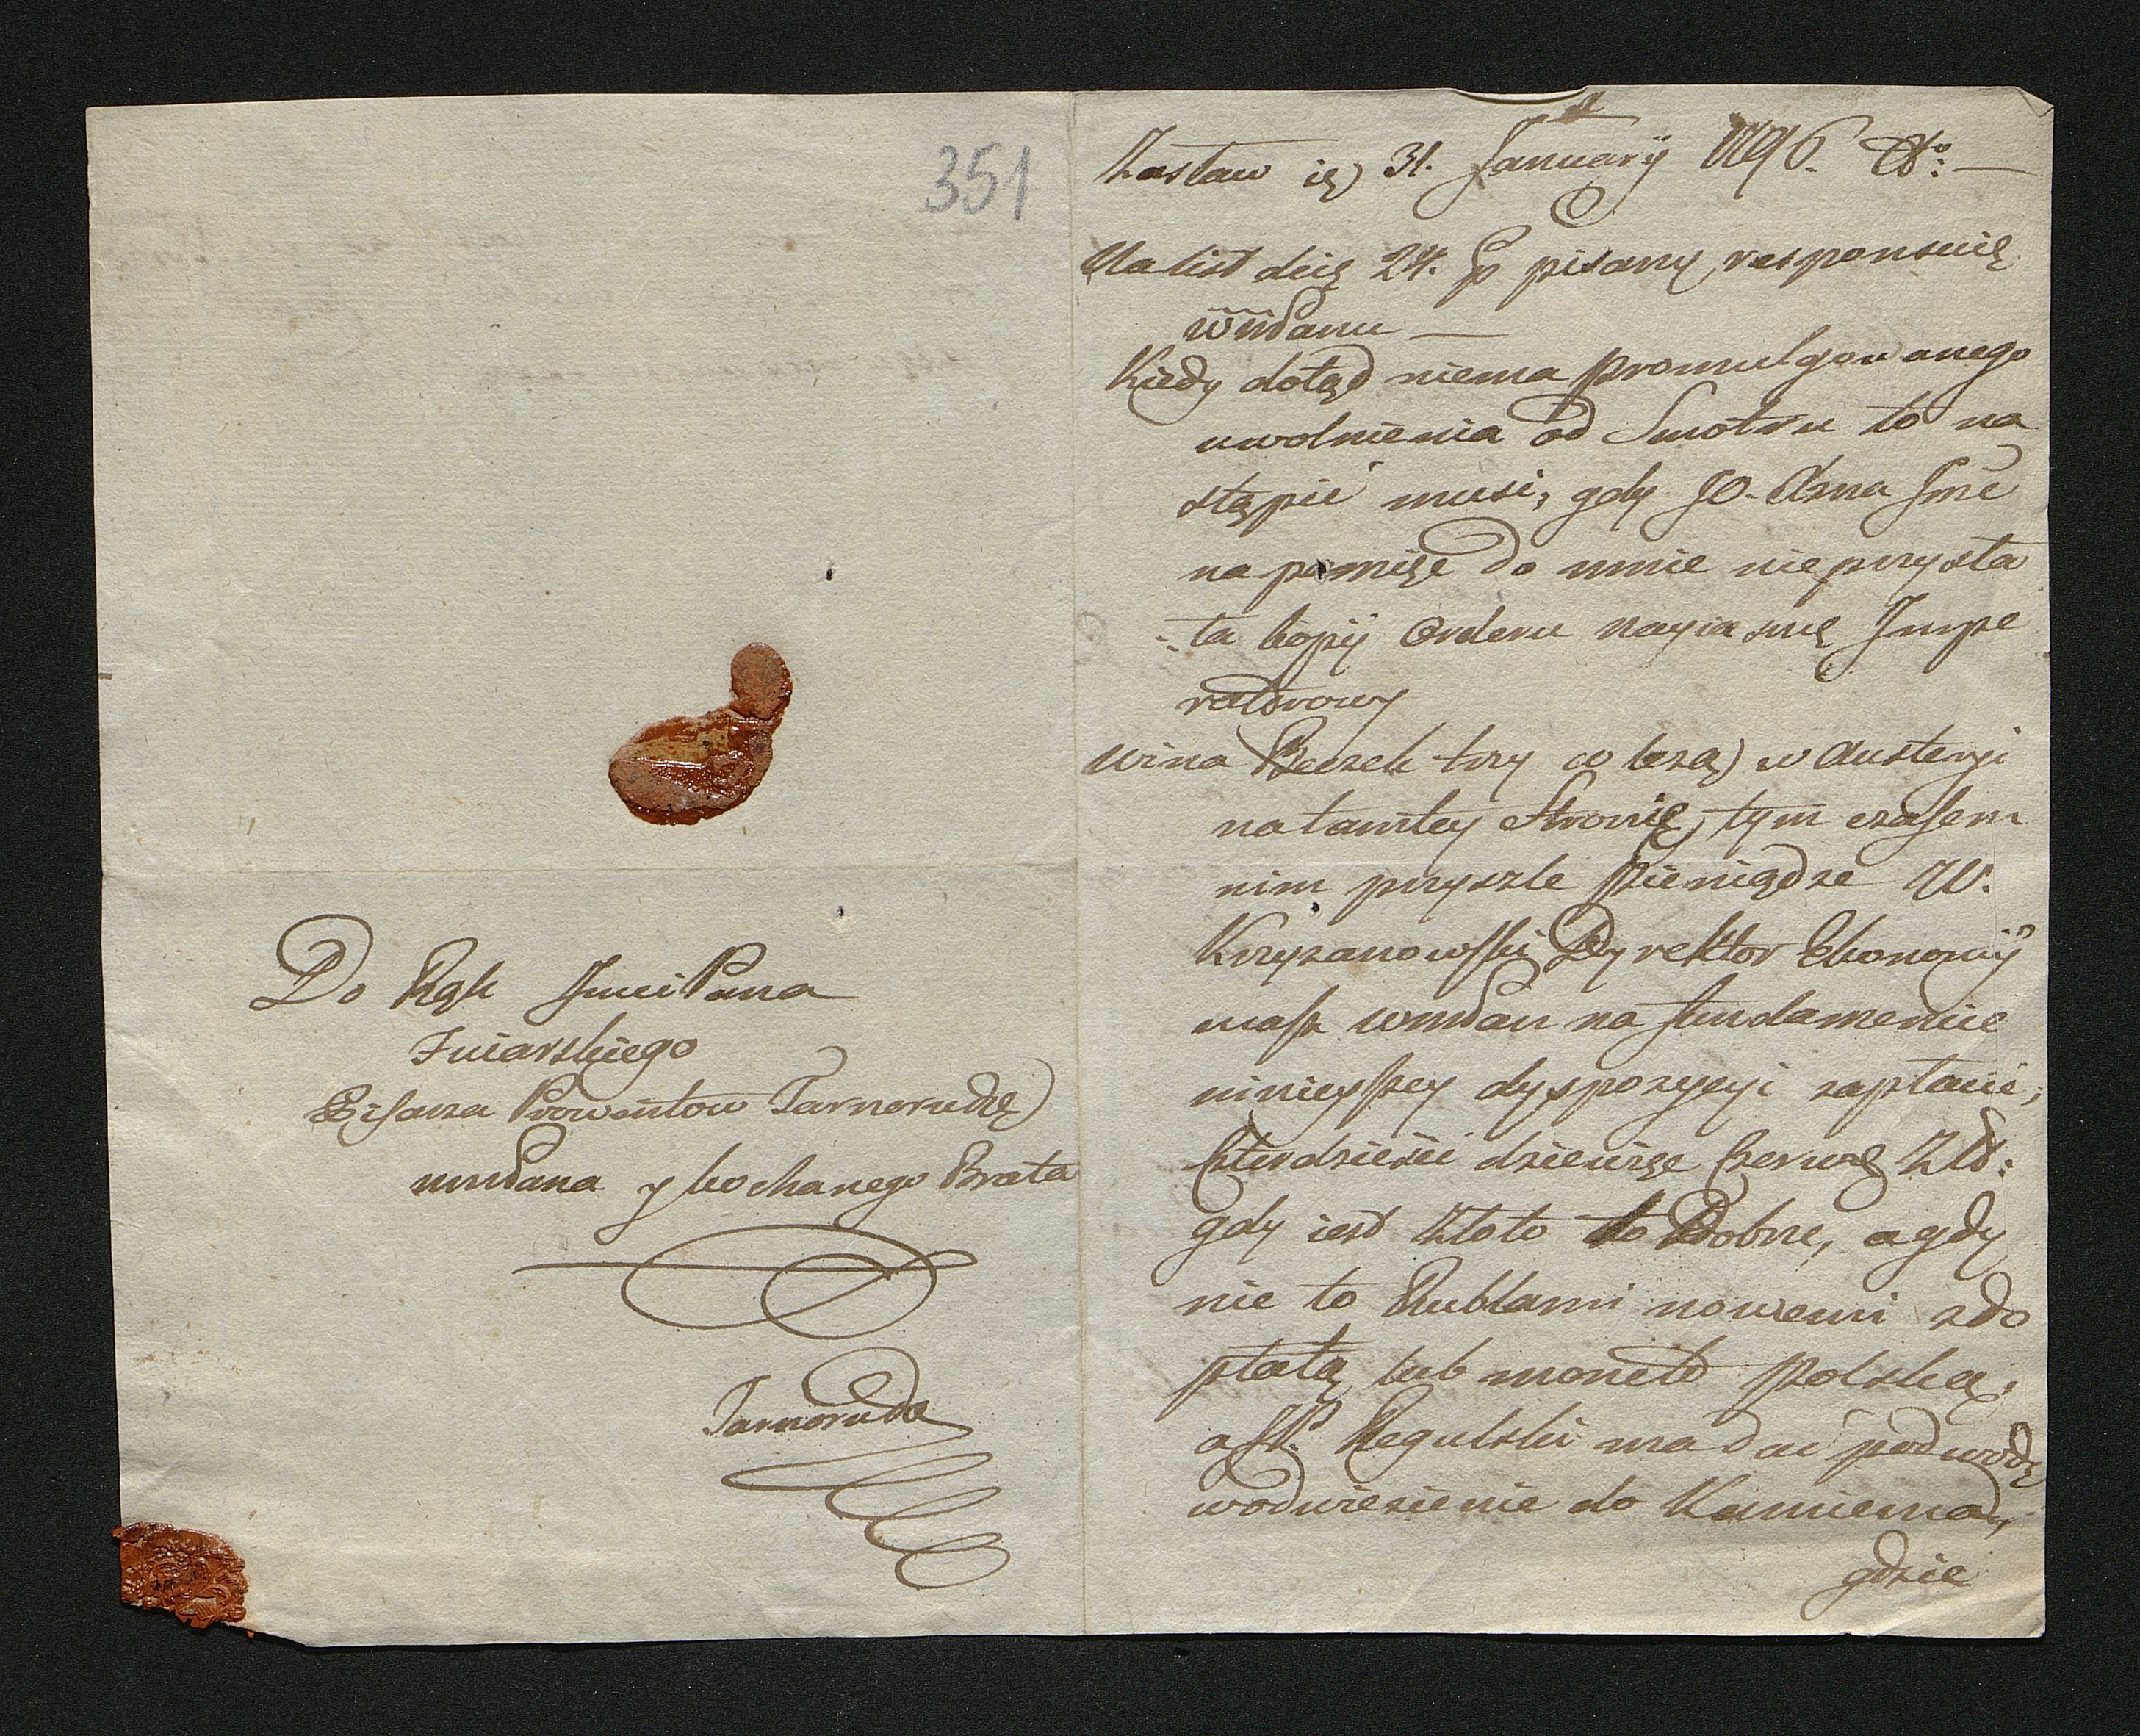 351
Do Rąk Jmci Pana
Zniarskiego
Pisarza Prowentow Tarnorudzę
mwdana y kochanego Brata
Tarnoruda
Zasław 31. January 1796. 
Na list die 24. p pisany, responsuię
wmdanu —
Kiedy dotąd niema promulgowanego
uwolnienia od Smotru to na
stąpić musi, gdy JO. Xsna Jmć
na pamięć do mnie nieprzysła
ła kopij Orderu nayiasnę Impe
ratorowy
Wina Beczek trzy w Austeryi
na tamtey Stronię, tym czasem
nim przyszle Pieniądze W.
Krzyzanowski Dyrektor Ekonomij
masz wmdan na fundamencie
ninieyszey dyspozycyi zapłacić,
Czterdzieści dziewięc Czerwę Złł:
gdy iest Złoto to Dobrze, a gdy
nie to Rublami nowemi z do
płatą lub monetą Polską,
a JP. Regulski ma dac podwodę
w odwiezienie do Kamienca,
gdzie